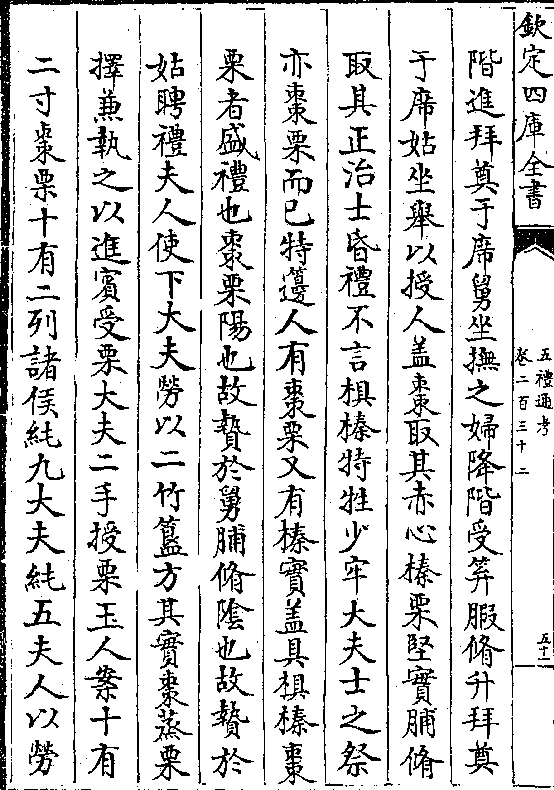 欽定四庫全書
五禮通考
卷二百三十二
五十二
階進拜奠于席舅坐撫之婦降階受笲腶脩升拜奠
于席姑坐舉以授人盖棗取其赤心榛栗堅實脯脩
取其正治士昏禮不言棋榛特牲少牢大夫士之祭
亦棗栗而已特籩人有棗栗又有榛實盖具棋榛棗
栗者盛禮也棗栗陽也故贄於舅脯脩陰也故贄於
姑聘禮夫人使下大夫勞以二竹簋方其實棗蒸栗
擇兼執之以進賓受栗大夫二手授栗玉人案十有
二寸棗栗十有二列諸侯純九大夫純五夫人以勞